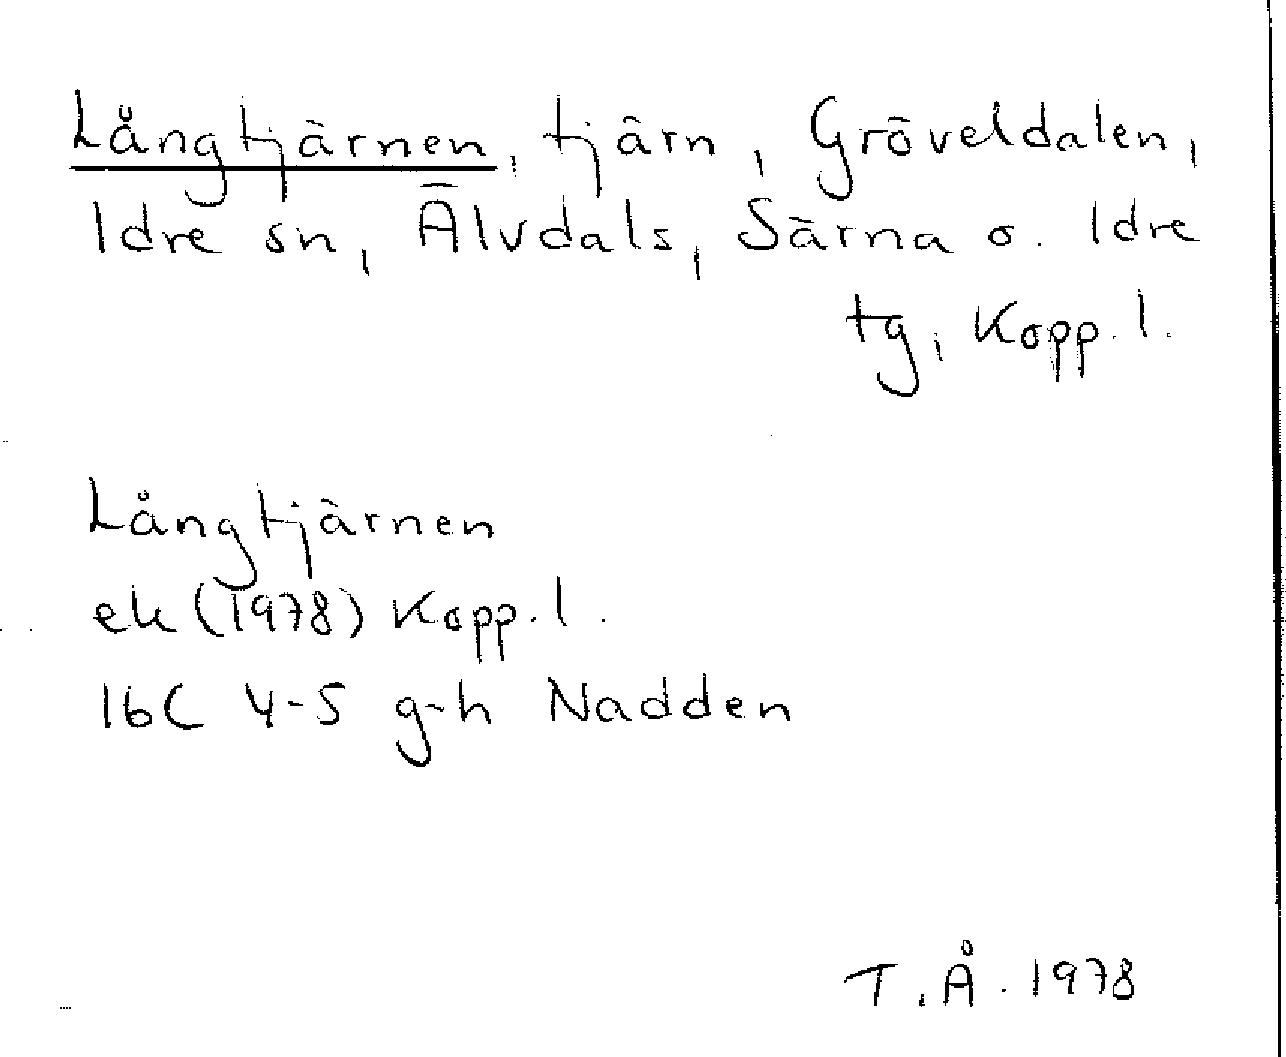 Långtjärnen, tjärn, Gröveldalen,
Idre sn, Älvdals, Särna o. Idre
tg, Kopp. l.
Långtjärnen
ek (1978) Kopp. l.
16C 4-5 g-h Nadden
T. Å. 1978